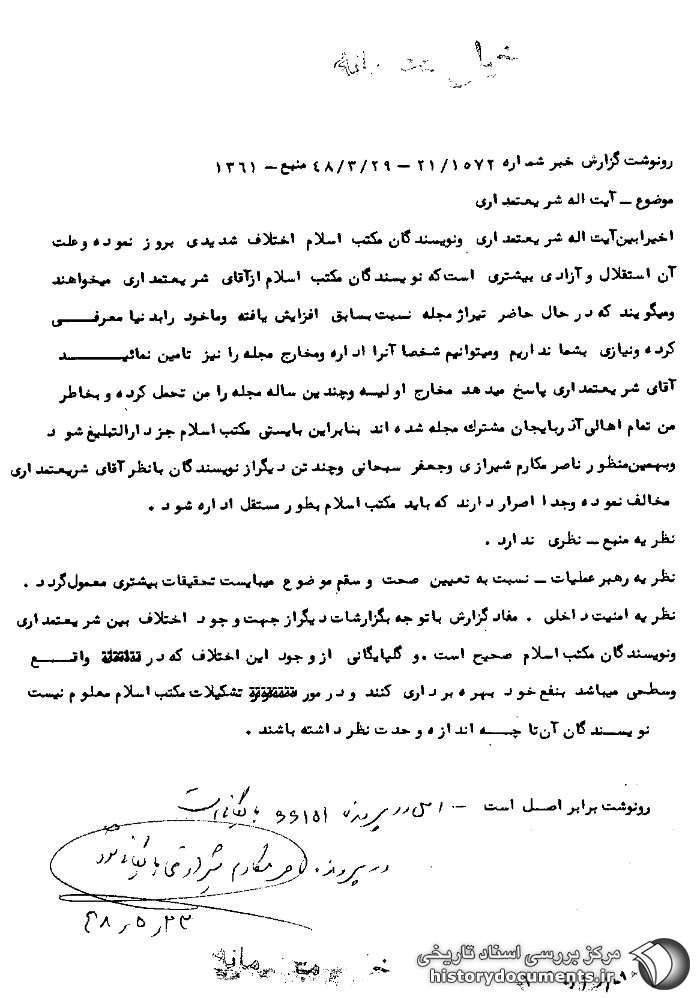 رونوشت گزارش خبر شماره ۲۱/۱۵۷۲ – ۴۸/۳/۲۹ منبع – ۱۳۶۱
موضوع – آیت اله شریعتمداری
اخیرابین‌آیت اله شریعتمداری ونویسندگان مکتب اسلام اختلاف شدیدی بروز نموده وعلت
آن استقلال و آزادی بیشتری است‌که نویسندگان مکتب اسلام ازآقای شریعتمداری میخواهند
ومیگویند که در حال حاضر تیراژ مجله نسبت بسابق افزایش یافته وماخود رابدنیا معرفی
کرده ونیازی بشما نداریم ومیتوانیم شخصا آنرا اداره ومخارج مجله را نیز تامین نمائید
آقای شریعتمداری پاسخ میدهد مخارج اولیسه وچندین ساله مجله را من تحمل کرده و بخاطر
من تمام اهالی‌آذربایجان مشترك مجله شده اند بنابراین بایستی مکتب اسلام جزدارالتبلیغ شود
وبهمین‌منظور ناصر مکارم شیرازی وجعفر سبحانی وچندتن دیگراز نویسندگان بانظرآقای شریعتمداری
مخالف نموده وجدا اصرار دارند که باید مکتب اسلام بطور مستقل اداره شود .
نظریه منبع – نظری ندارد .
نظریه رهبر عملیات – نسبت به تعیین صحت و سقم موضوع میبایست تحقیقات بیشتری معمول‌گردد .
نظریه امنیت داخلی . مفاد گزارش باتوجه بگزارشات دیگراز جهت وجود اختلاف بین شریعتمداری
ونویسندگان مکتب اسلام صحیح است .و گلپایگانی ازوجود این اختلاف که در واقع
وسطحی میباشد بنفع خود بهره برداری کنند و در مور تشکیلات مکتب اسلام معلوم نیست
نویسندگان آن‌تا چه اندازه وحدت نظر داشته باشند .
رونوشت برابر اصل است – اصل در پرونده ۶۶۱۵۱ بایگانی است
در پرونده ناصر مکارم شیرازی بایگانی شود
۴۸٫۵٫۲۲
مرکز بررسی اسناد تاریخی
historydocuments.ir